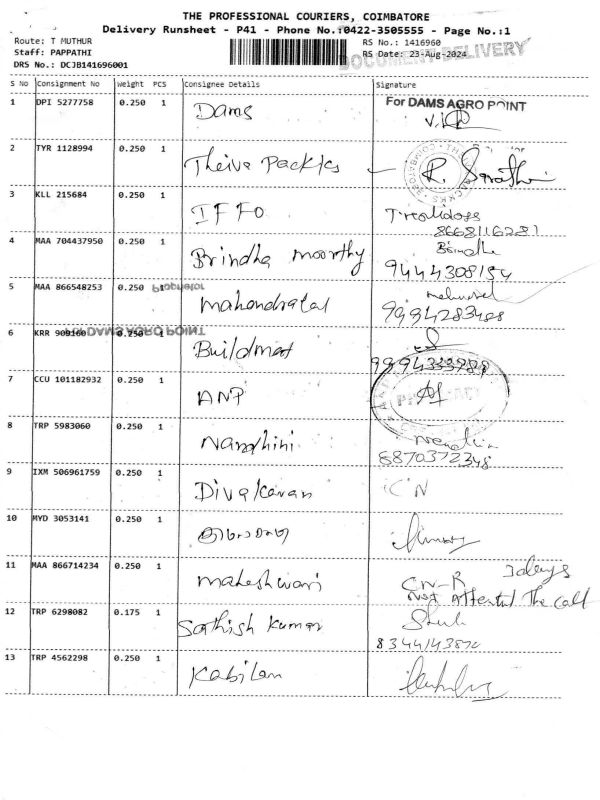 THE PROFESSIONAL COURIERS, COIMBATORE
Delivery Runsheet - P41 - Phone No.:0422-3505555 - Page No.:1
Route: T MUTHUR
RS No.: 1416960
Staff: PAPPATHI
RS Date: 23-Aug-2024
DOCUMENT DELIVERY
DRS No.: DCJB141696001
S No Consignment No Weight PCS Consignee Details Signature
1 DPI 5277758 0.250 1 Dams For DAMS AGRO POINT
2 TYR 1128994 0.250 1 Theiva Packics R. Sarathi
3 KLL 215684 0.250 1 IFFO
8668116281
4 MAA 704437950 0.250 1 Brindha moorthy Brindha
9444308154
5 MAA 866548253 0.250 1 mahendralal
Proprietor
9994283488
6 KRR 909160 0.250 1 Buildmat
DAMS AGRO POINT
7 CCU 101182932 0.250 1 ANP
8 TRP 5983060 0.250 1 Nandhini
8870372348
9 IXM 506961759 0.250 1 Divakaran CN
10 MYD 3053141 0.250 1
11 MAA 866714234 0.250 1 maheshwari CN-R 3days
Not Attented The call
12 TRP 6298082 0.175 1 Sathish kumar
13 TRP 4562298 0.250 1 Kabilan